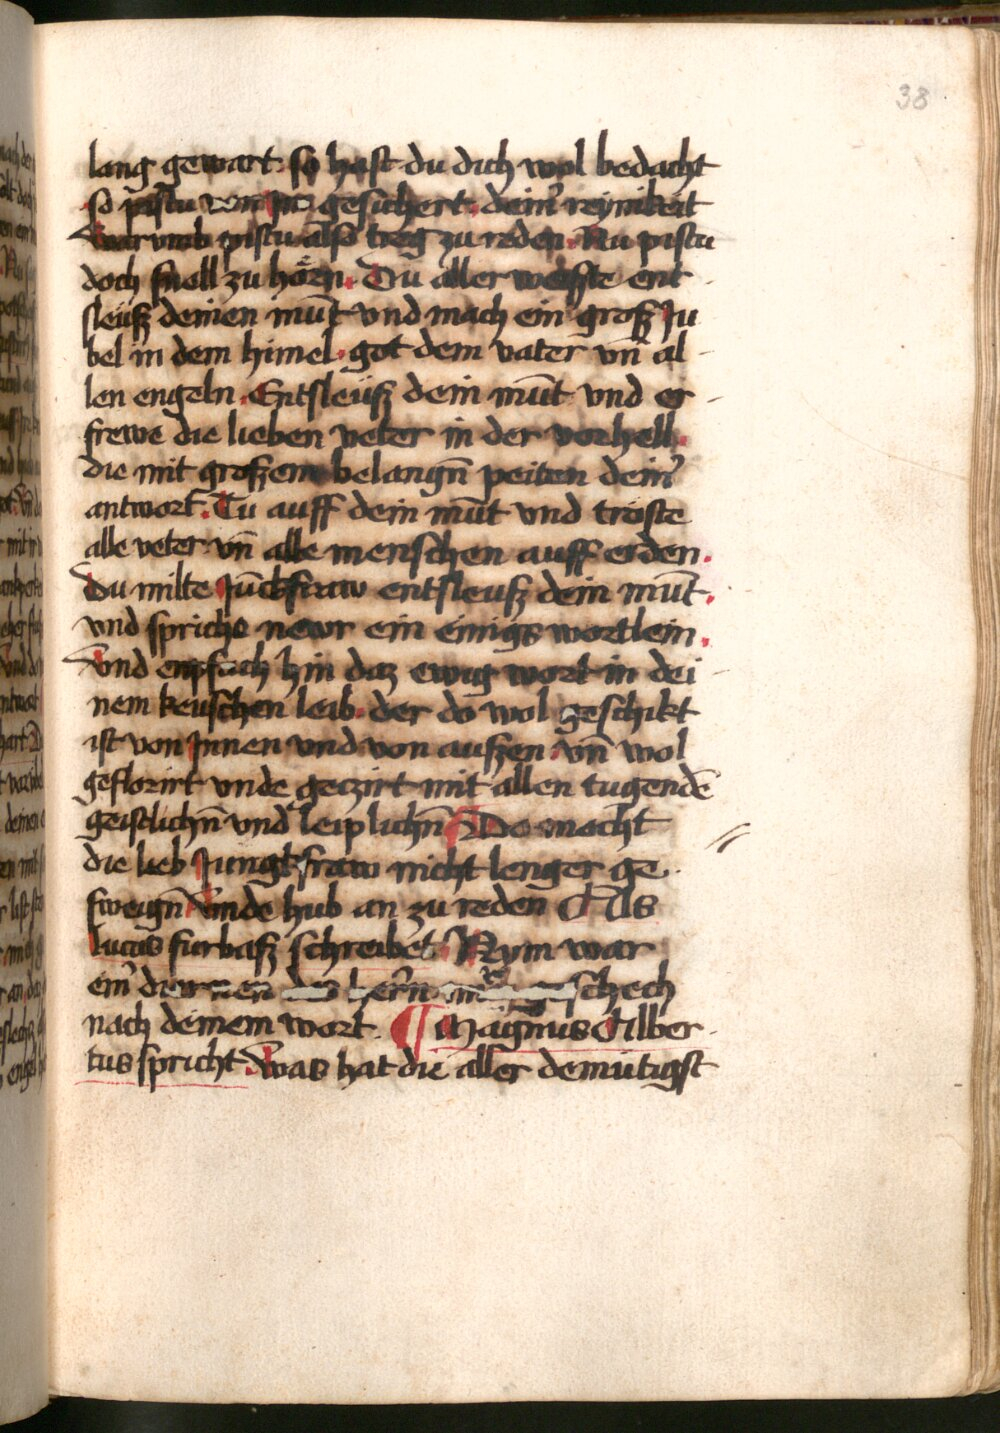 38
lang gewart. so hast du dich wol bedacht
so pistu von im gesichert. deinˀ reynikeit
warumb pistu also treg zu reden. Nu pistu
doch snell zu hörn. Du aller weiste ent
sleuſz deinen mūt vnd mach ein groſz Ju
bel in dem himel. got dem vater vn̄ al
len engeln. Entsleuſz dein mūt vnd er
frewe die lieben veter in der vorhell.
die mit groſzem belangn̄ peiten deinˀ
antwort. Tu auff dein mūt vnd tröste
alle veter vn̄ alle menschen auff erden.
Du milte Jūckfraw entsleuſz dein mūt.
vnd spriche newr ein einigs wortlein.
Vnd enpfach hin daz ewig wort in dei
nem keuschen leib. der do wol geschikt
ist von Jnnen vnd von auſzen vn̄ wol
geflorirt vnde geczirt mit allen tugendē
geistlichn̄ vnd leiplichn̄ Do macht
die lieb Jungkfraw nicht lenger ge
sweign̄ Vnde hub an zu reden Als
lucas furbaſz schreibet. Nym war
einˀ diernen des herˀn mir geschech
nach deinem wort. ¶ Magnus Alber
tus spricht. was hat die aller demutigst